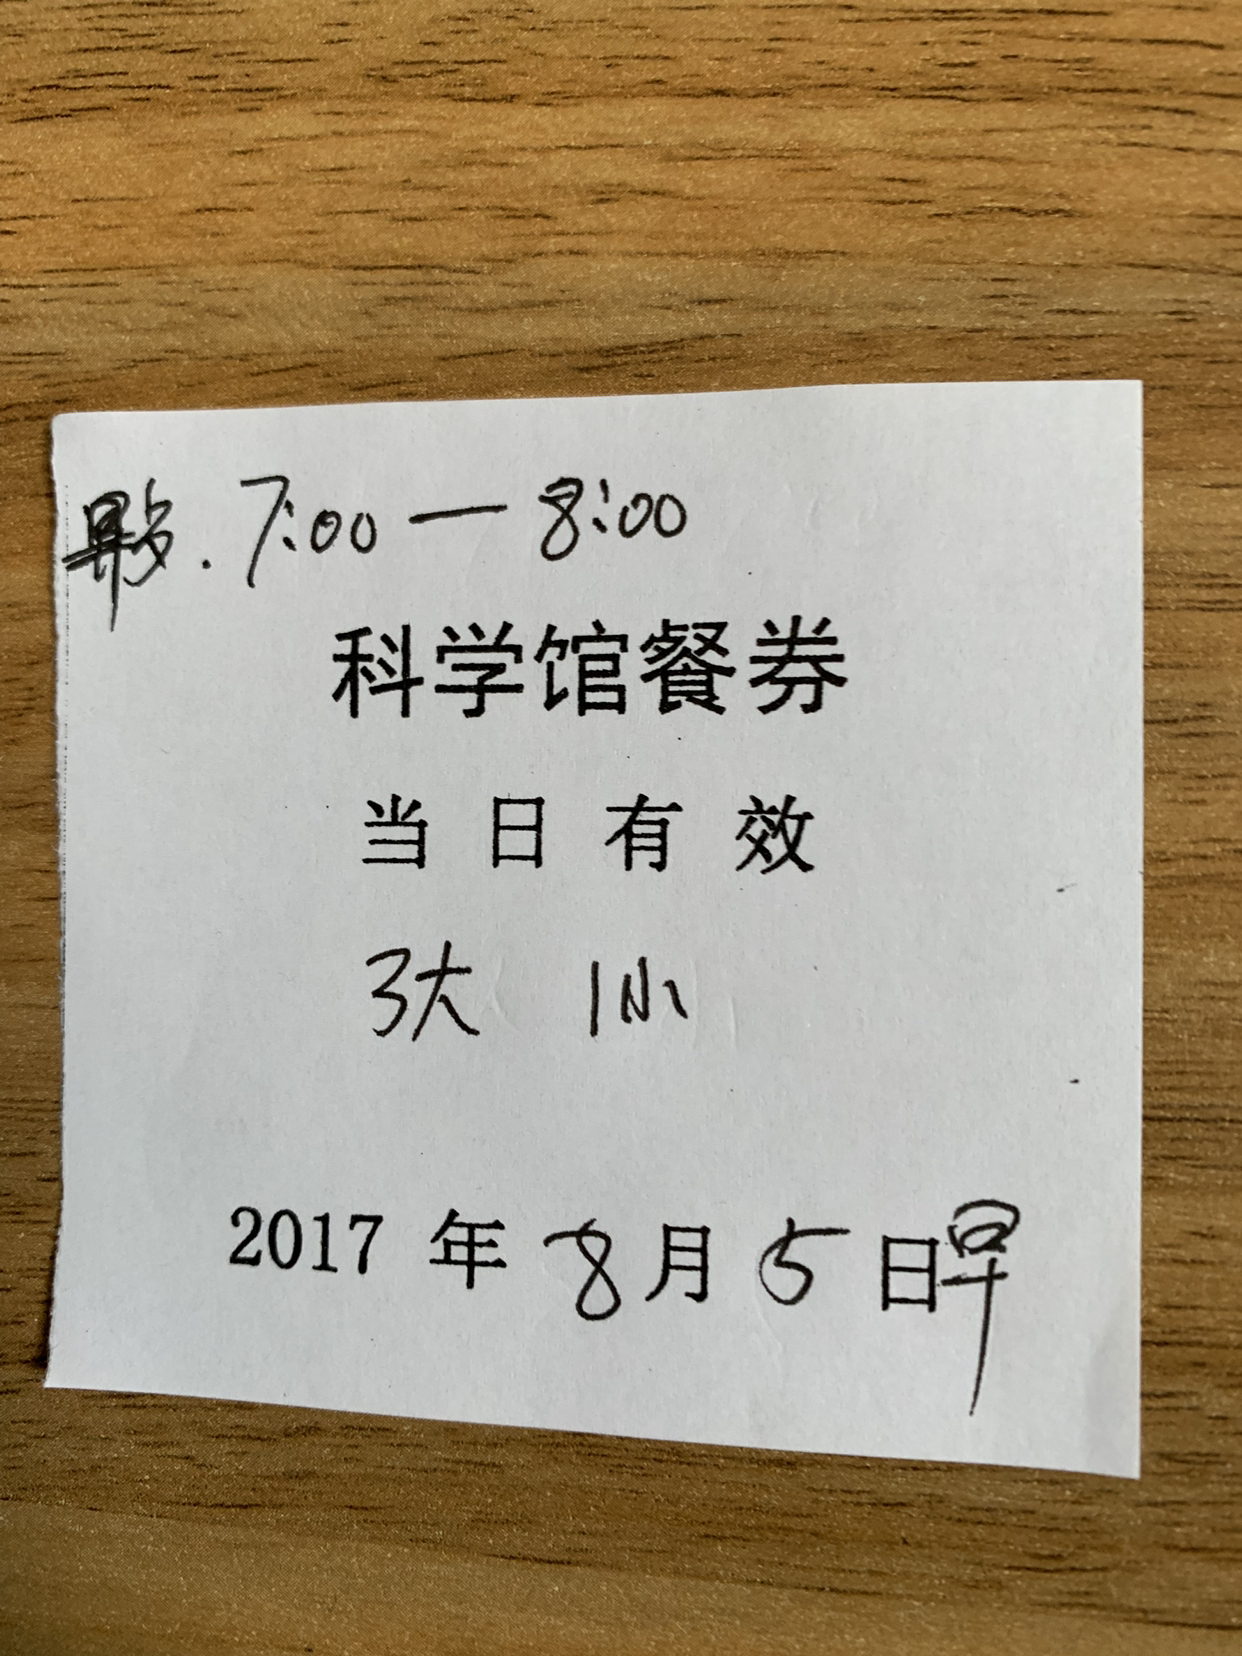 早 7:00—8:00
科学馆餐券
当日有效
3大 1小
2017年8月5日早